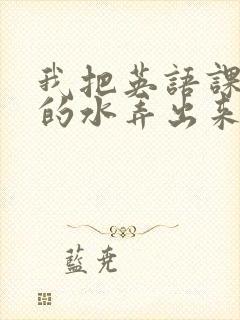 我把英語課
的水弄出來
藍堯